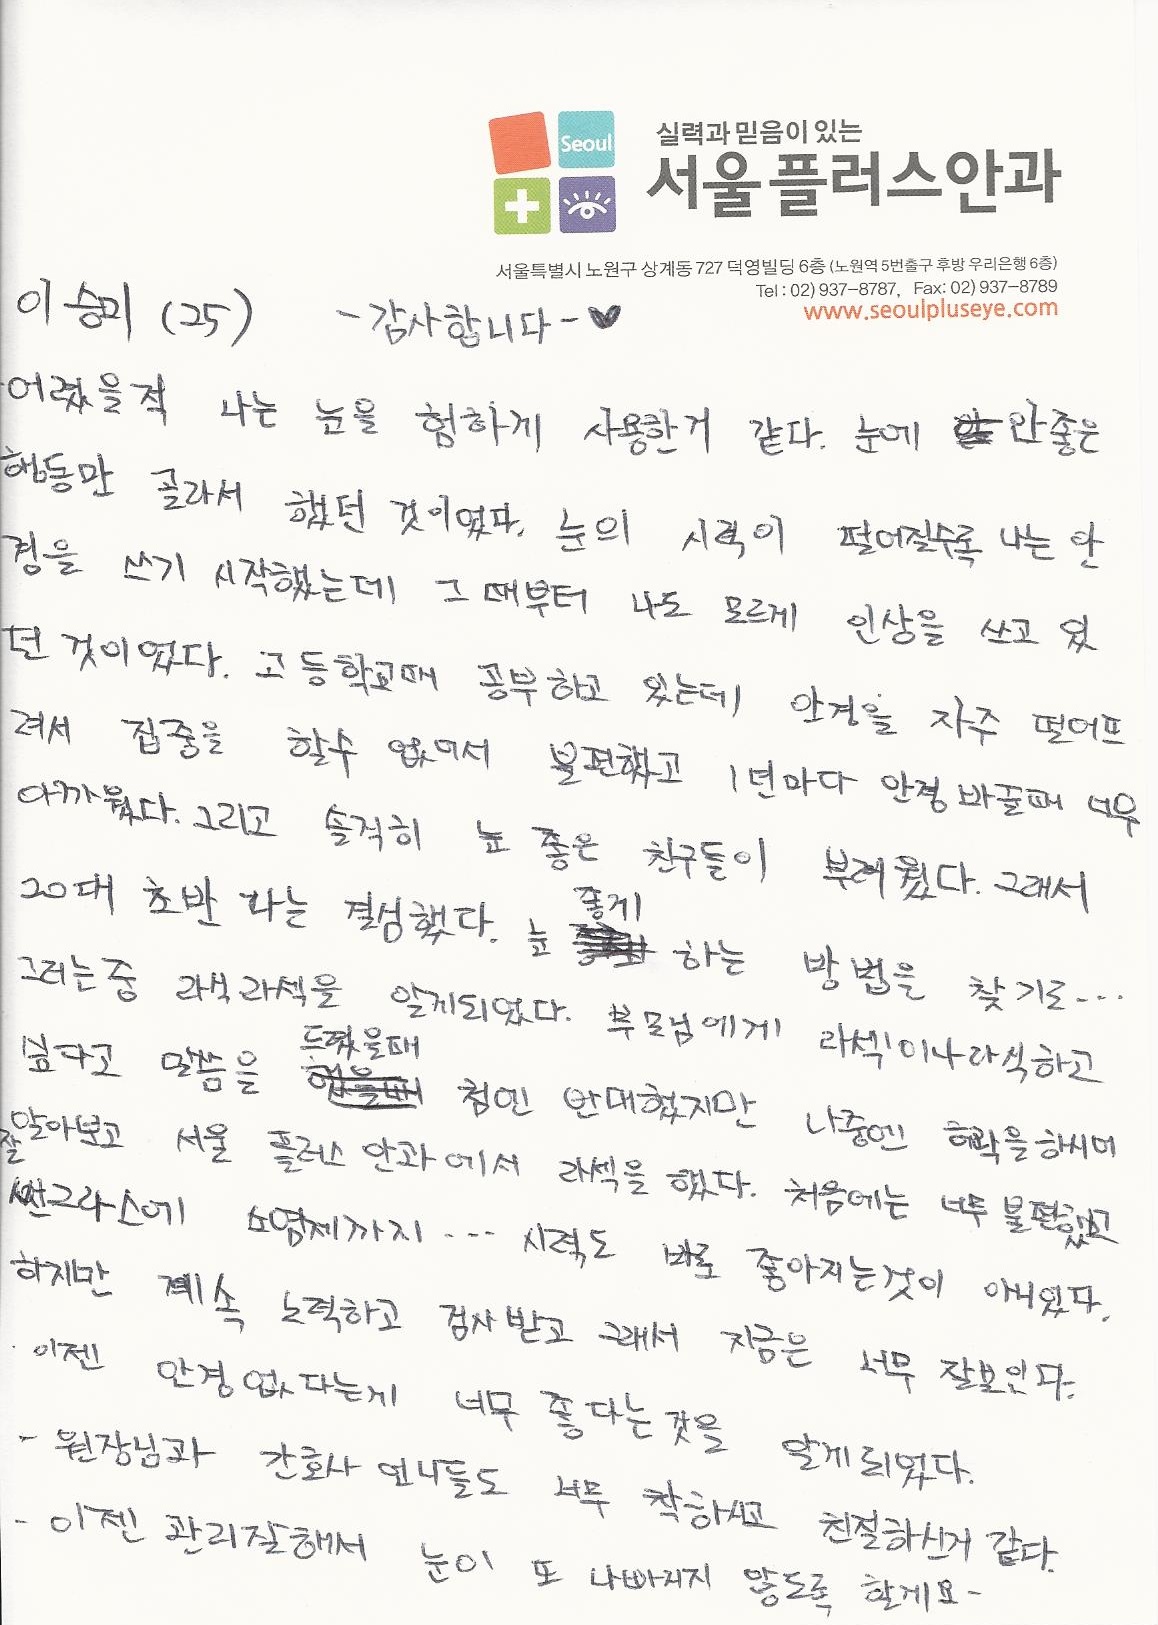 Seoul
실력과 믿음이 있는
서울플러스안과
서울특별시 노원구 상계동 727 덕영빌딩 6층 (노원역 5번출구 후방 우리은행 6층)
Tel : 02) 937-8787, Fax: 02) 937-8789
www.seoulpluseye.com
이승미 (25) - 감사합니다 - ♥
어렸을적 나는 눈을 험하게 사용한거 같다. 눈에 안좋은
행동만 골라서 했던 것이었다. 눈의 시력이 떨어질수록 나는 안
경을 쓰기 시작했는데 그때부터 나도 모르게 인상을 쓰고 있
던 것이었다. 고등학교때 공부하고 있는데 안경을 자주 떨어뜨
려서 집중을 할수 없어서 불편했고 1년마다 안경 바꿀때 너무
아까웠다. 그리고 솔직히 눈 좋은 친구들이 부러웠다. 그래서
20대 초반 나는 결심했다. 눈 좋게 하는 방법을 찾기로...
그러는중 라식라섹을 알게되었다. 부모님에게 라섹이나라식하고
싶다고 말씀을 드렸을때 첨엔 반대했지만 나중엔 허락을하시며
잘 알아보고 서울 플러스 안과에서 라섹을 했다. 처음에는 너무 불편했고
썬그라스에 소염제까지... 시력도 바로 좋아지는것이 아니었다.
하지만 계속 노력하고 검사받고 그래서 지금은 너무 잘보인다.
이젠 안경없다는게 너무 좋다는 것을 알게되었다.
- 원장님과 간호사 언니들도 너무 착하시고 친절하신거 같다.
- 이젠 관리잘해서 눈이 또 나빠지지 않도록 할게요-